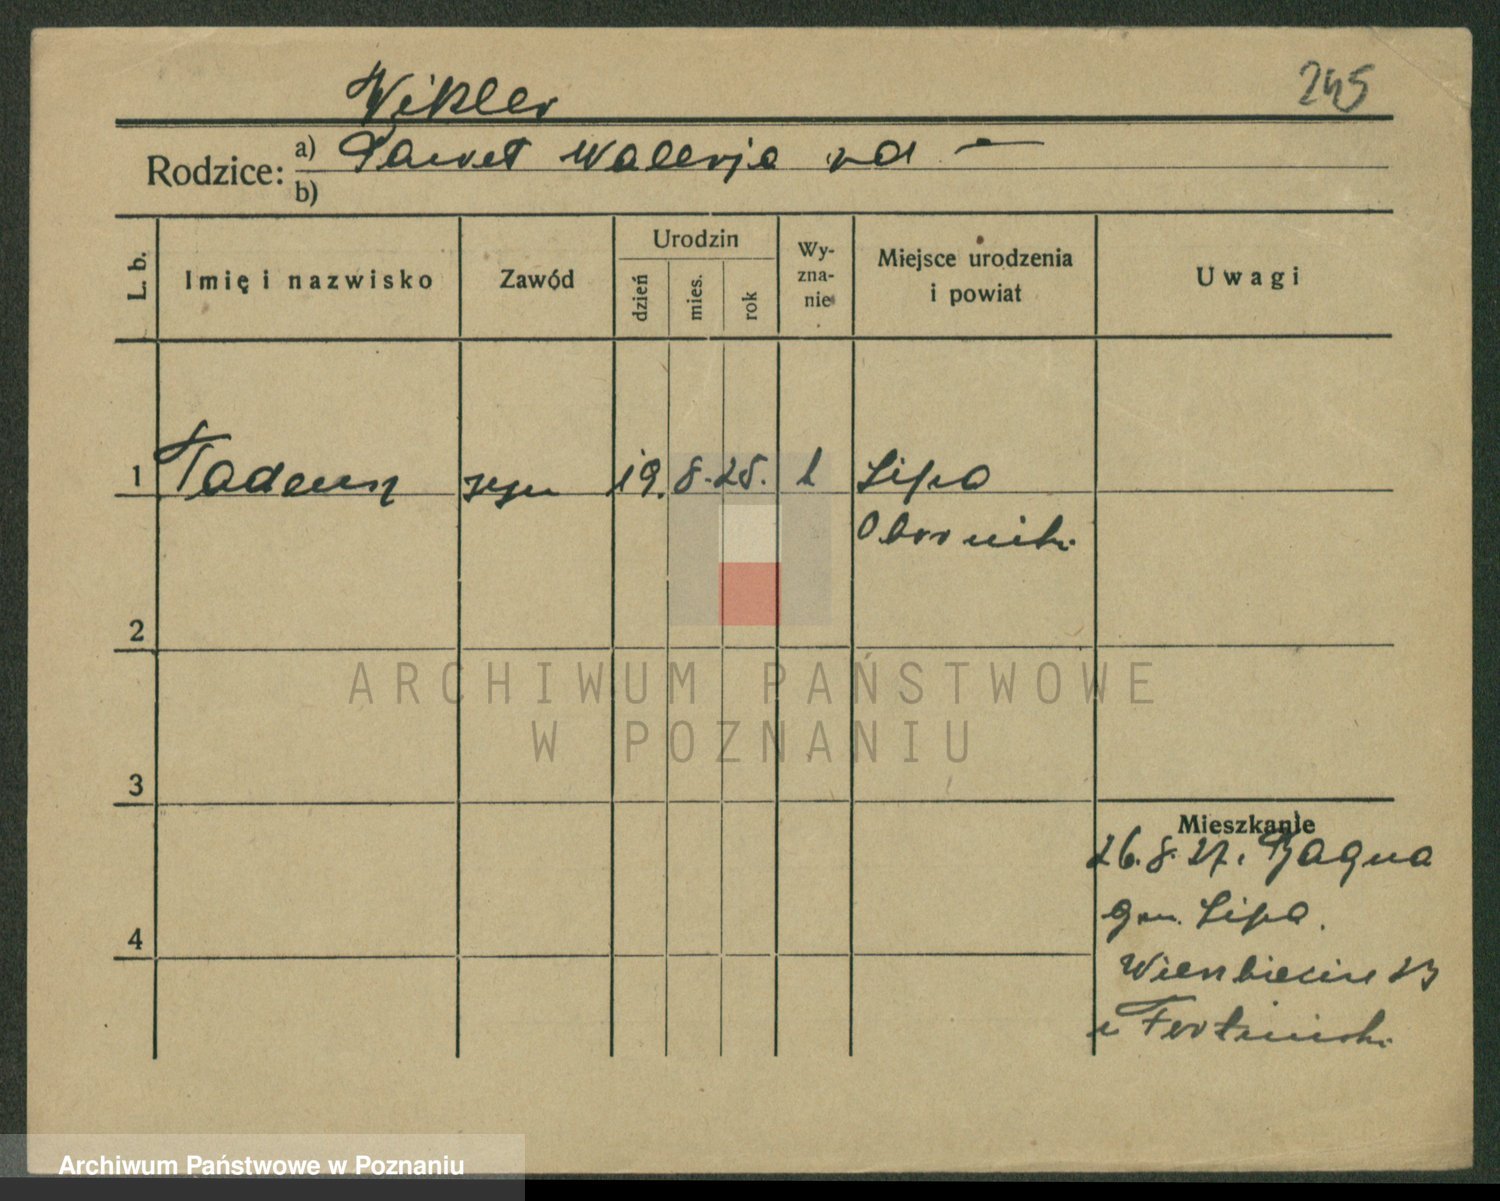 245
Wikler
Rodzice: a) Paweł Walerja zd —
b)
L. b. Imię i nazwisko Zawód Urodzin dzień mies. rok Wy-zna-nie Miejsce urodzenia i powiat Uwagi
1 Tadeusz syn 19. 8. 25. k Lipa
Oborniki
2
3
4
Mieszkanie
26. 8. 27. Bagna
gm. Lipa.
Wierzbięcice 23
ARCHIWUM PAŃSTWOWE
W POZNANIU
Archiwum Państwowe w Poznaniu